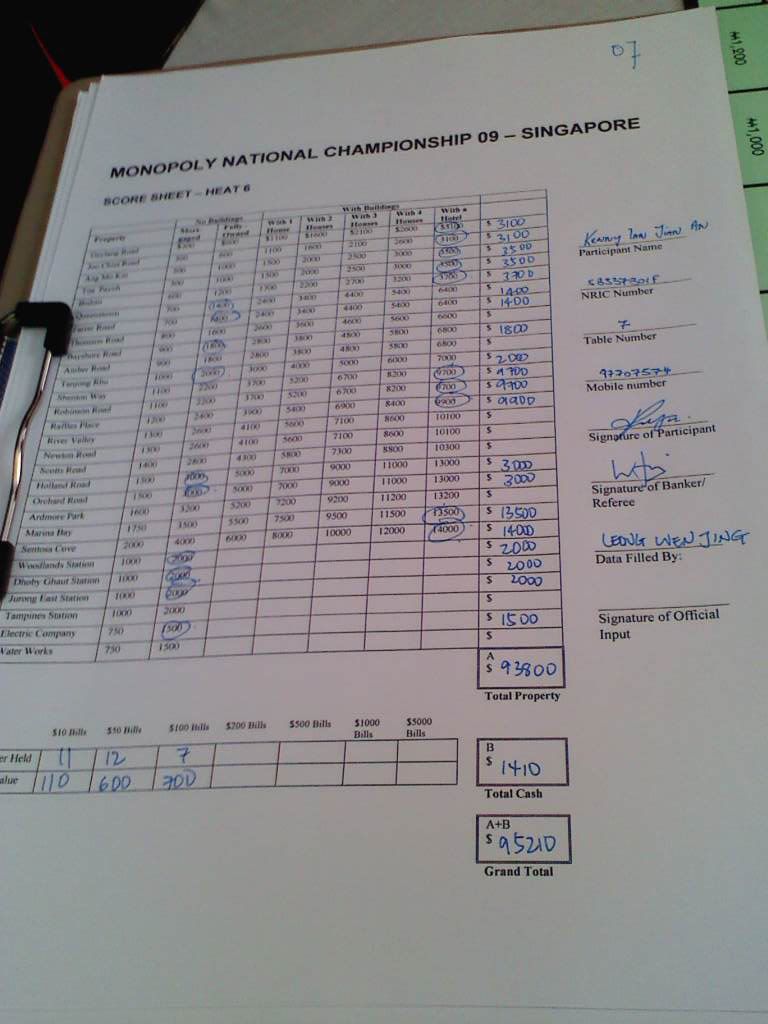 07
₩1,200
₩1,000
MONOPOLY NATIONAL CHAMPIONSHIP 09 – SINGAPORE
SCORE SHEET – HEAT 6
No Buildings With Buildings
Property Mort gaged Fully Owned With 1 House With 2 Houses With 3 Houses With 4 Houses With a Hotel
Geylang Road $300 $600 $1100 $1600 $2100 $2600 $3100 $ 3100
Joo Chiat Road 300 600 1100 1600 2100 2600 3100 $ 3100
Ang Mo Kio 500 1000 1500 2000 2500 3000 3500 $ 3500
Toa Payoh 500 1000 1500 2000 2500 3000 3500 $ 3500
Bishan 600 1200 1700 2200 2700 3200 3700 $ 3700
Queenstown 700 1400 2400 3400 4400 5400 6400 $ 1400
Road 700 1400 2400 3400 4400 5400 6400 $ 1400
Thomson Road 800 1600 2600 3600 4600 5600 6600 $
Bayshore Road 900 1800 2800 3800 4800 5800 6800 $ 1800
Amber Road 900 1800 2800 3800 4800 5800 6800 $
Tanjong Rhu 1000 2000 3000 4000 5000 6000 7000 $ 2000
Shenton Way 1100 2200 3700 5200 6700 8200 9700 $ 9700
Robinson Road 1100 2200 3700 5200 6700 8200 9700 $ 9700
Raffles Place 1200 2400 3900 5400 6900 8400 9900 $ 9900
River Valley 1300 2600 4100 5600 7100 8600 10100 $
Newton Road 1300 2600 4100 5600 7100 8600 10100 $
Scotts Road 1400 2800 4300 5800 7300 8800 10300 $
Holland Road 1500 3000 5000 7000 9000 11000 13000 $ 3000
Orchard Road 1500 3000 5000 7000 9000 11000 13000 $ 3000
Ardmore Park 1600 3200 5200 7200 9200 11200 13200 $
Marina Bay 1750 3500 5500 7500 9500 11500 13500 $ 13500
Sentosa Cove 2000 4000 6000 8000 10000 12000 14000 $ 14000
Woodlands Station 1000 2000 $ 2000
Dhoby Ghaut Station 1000 2000 $ 2000
Jurong East Station 1000 2000 $ 2000
Tampines Station 1000 2000 $
Electric Company 750 1500 $ 1500
Water Works 750 1500 $
A
$ 93800
Total Property
Kenny Tan Jian An
Participant Name
NRIC Number
7
Table Number
97707574
Mobile number
Signature of Participant
Signature of Banker/
Referee
LEONG WEN JING
Data Filled By:
Signature of Official
Input
$10 Bills $50 Bills $100 Bills $200 Bills $500 Bills $1000 Bills $5000 Bills
er Held 11 12 7
alue 110 600 700
B
$ 1410
Total Cash
A+B
$ 95210
Grand Total